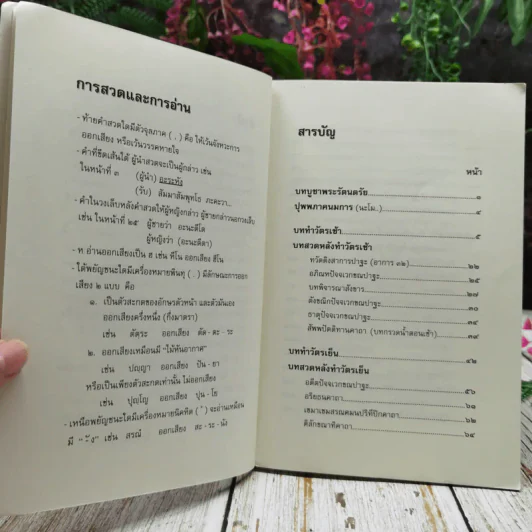 การสวดและการอ่าน
- ท้ายคำสวดใดมีตัวจุลภาค ( , ) คือ ให้เว้นจังหวะการ
ออกเสียง หรือเว้นวรรคหายใจ
- คำที่ขีดเส้นใต้ ผู้นำสวดจะเป็นผู้กล่าว เช่น
ในหน้าที่ ๓ (ผู้นำ) อะระหัง
(รับ) สัมมาสัมพุทโธ ภะคะวา...
- คำในวงเล็บหลังคำสวดให้ผู้หญิงกล่าว ผู้ชายกล่าวนอกวงเล็บ
เช่น ในหน้าที่ ๒๕ ผู้ชายว่า อะนะตีโต
ผู้หญิงว่า (อะนะตีตา)
- ห อ่านออกเสียงเป็น ฮ เช่น หีโน ออกเสียง ฮีโน
- ใต้พยัญชนะใดมีเครื่องหมายพินทุ ( . ) มีลักษณะการออก
เสียง ๒ แบบ คือ
๑. เป็นตัวสะกดของอักษรตัวหน้า และตัวมันเอง
ออกเสียงครึ่งหนึ่ง (กึ่งมาตรา)
เช่น ตัตฺระ ออกเสียง ตัต - ตะ - ระ
๒. ออกเสียงเหมือนมี "ไม้หันอากาศ"
เช่น ปญฺญา ออกเสียง ปัน - ยา
หรือเป็นเพียงตัวสะกดเท่านั้น ไม่ออกเสียง
เช่น ปุญฺโญ ออกเสียง ปุน - โย
- เหนือพยัญชนะใดมีเครื่องหมายนิคหิต ( ํ ) จะอ่านเหมือน
มี "-ัง" เช่น สรณํ ออกเสียง สะ - ระ - นัง
สารบัญ
หน้า
บทบูชาพระรัตนตรัย ๑
ปุพพภาคนมการ (นะโม.) ๔
บททำวัตรเช้า ๕
บทสวดหลังทำวัตรเช้า
ทวัตติงสาการปาฐะ (อาการ ๓๒) ๒๒
อภิณหปัจจเวกขณปาฐะ ๒๕
บทพิจารณาสังขาร ๒๗
ตังขณิกปัจจเวกขณปาฐะ ๓๐
ธาตุปัจจเวกขณปาฐะ ๓๔
อัพพปัตติทานคาถา (บทกรวดน้ำตอนเช้า) ๓๘
บททำวัตรเย็น ๔๒
บทสวดหลังทำวัตรเย็น
อตีตปัจจเวกขณปาฐะ ๕๖
อริยธนคาถา ๖๑
เขมาเขมสรณคมนปริทีปิกคาถา ๖๒
ติลักขณาทิคาถา ๖๔